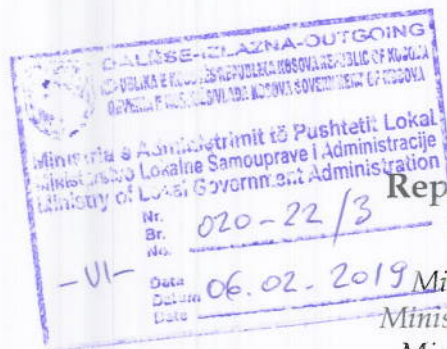 DALËSE-IZLAZNA-OUTGOING
REPUBLIKA E KOSOVËS/REPUBLIKA KOSOVA/REPUBLIC OF KOSOVA
QEVERIA E KOSOVËS/VLADA KOSOVA/GOVERNMENT OF KOSOVA
Ministria e Administrimit të Pushtetit Lokal
Ministarstvo Lokalne Samouprave i Administracije
Ministry of Local Government Administration
Rep
Nr.
Br. 020-22/3
No.
-VI-
Data
Datum 06.02.2019
Date
Mi
Minis